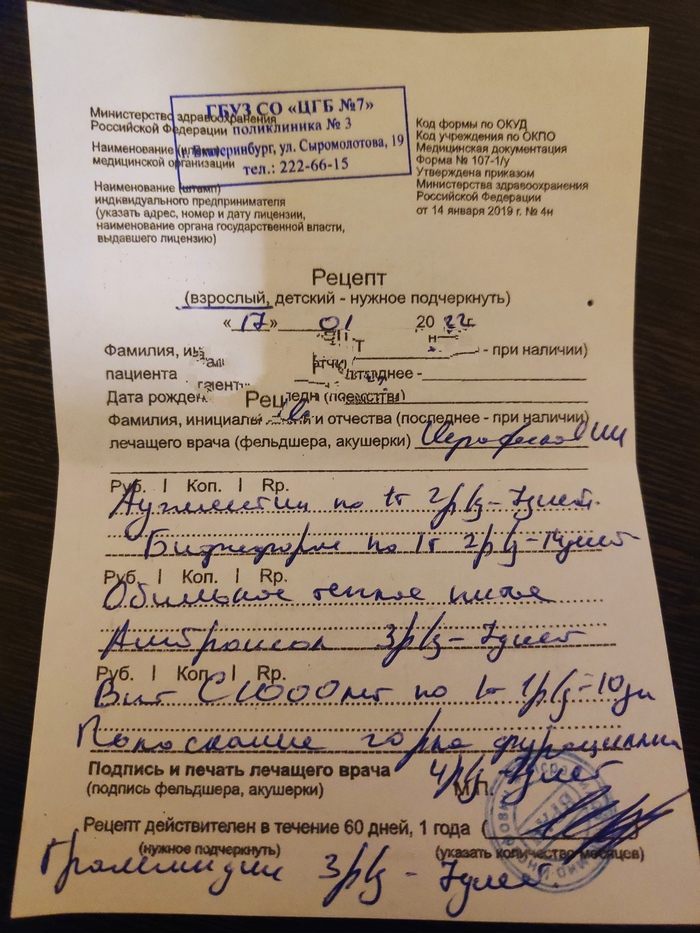 ГБУЗ СО «ЦГБ №7»
поликлиника № 3
г. Екатеринбург, ул. Сыромолотова, 19
тел.: 222-66-15
Министерство здравоохранения
Российской Федерации
Наименование (штамп)
медицинской организации
Наименование (штамп)
индквидуального предпринимателя
(указать адрес, номер и дату лицензии,
наименование органа государственной власти,
выдавшего лицензию)
Код формы по ОКУД
Код учреждения по ОКПО
Медицинская документация
Форма № 107-1/у
Утверждена приказом
Министерства здравоохранения
Российской Федерации
от 14 января 2019 г. № 4н
Рецепт
(взрослый, детский - нужное подчеркнуть)
«17» 01 2022
Фамилия, - при наличии)
пациента
Дата рожден
Рец
Фамилия, инициалы и отчества (последнее - при наличии)
лечащего врача (фельдшера, акушерки)
Руб. | Коп. | Rp.
Аугментин по 1т 2р/д - 7дней
Бифиформ по 1т 2р/д - 14дней
Руб. | Коп. | Rp.
Обильное теплое питье
Амброксол 3р/д - 7дней
Руб. | Коп. | Rp.
Вит С 1000мг по 1т 1р/д - 10дн
Полоскание горла фурацилин
4р/д - 7дней
Подпись и печать лечащего врача
(подпись фельдшера, акушерки)
М.П.
Рецепт действителен в течение 60 дней, 1 года (
(нужное подчеркнуть)
(указать количество месяцев)
Граммидин 3р/д - 7дней